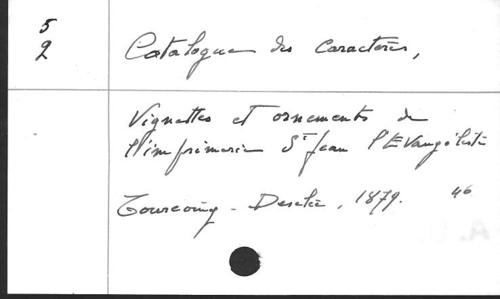 5
2
Catalogue des Caractères,
Vignettes et ornements de
l'imprimerie St Jean l'Evangéliste
Tourcoing - Desclée, 1879. 46